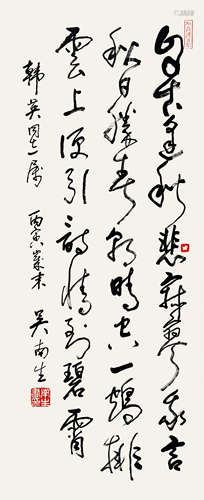 自古逢秋悲寂寥我言
秋日胜春朝晴空一鹤排
雲上便引诗情到碧霄
韩英同志属 丙寅岁末 吴南生